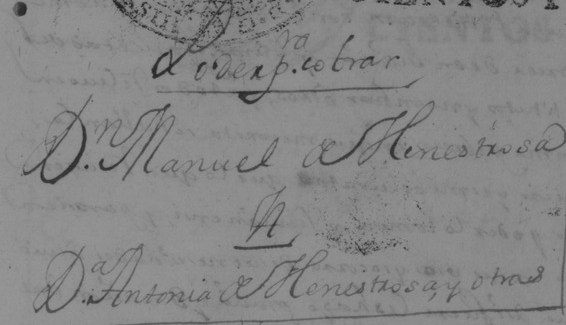 Poder pra. cobrar
Dn. Manuel de Henestrosa
A
Da. Antonia de Henestrosa, y otras